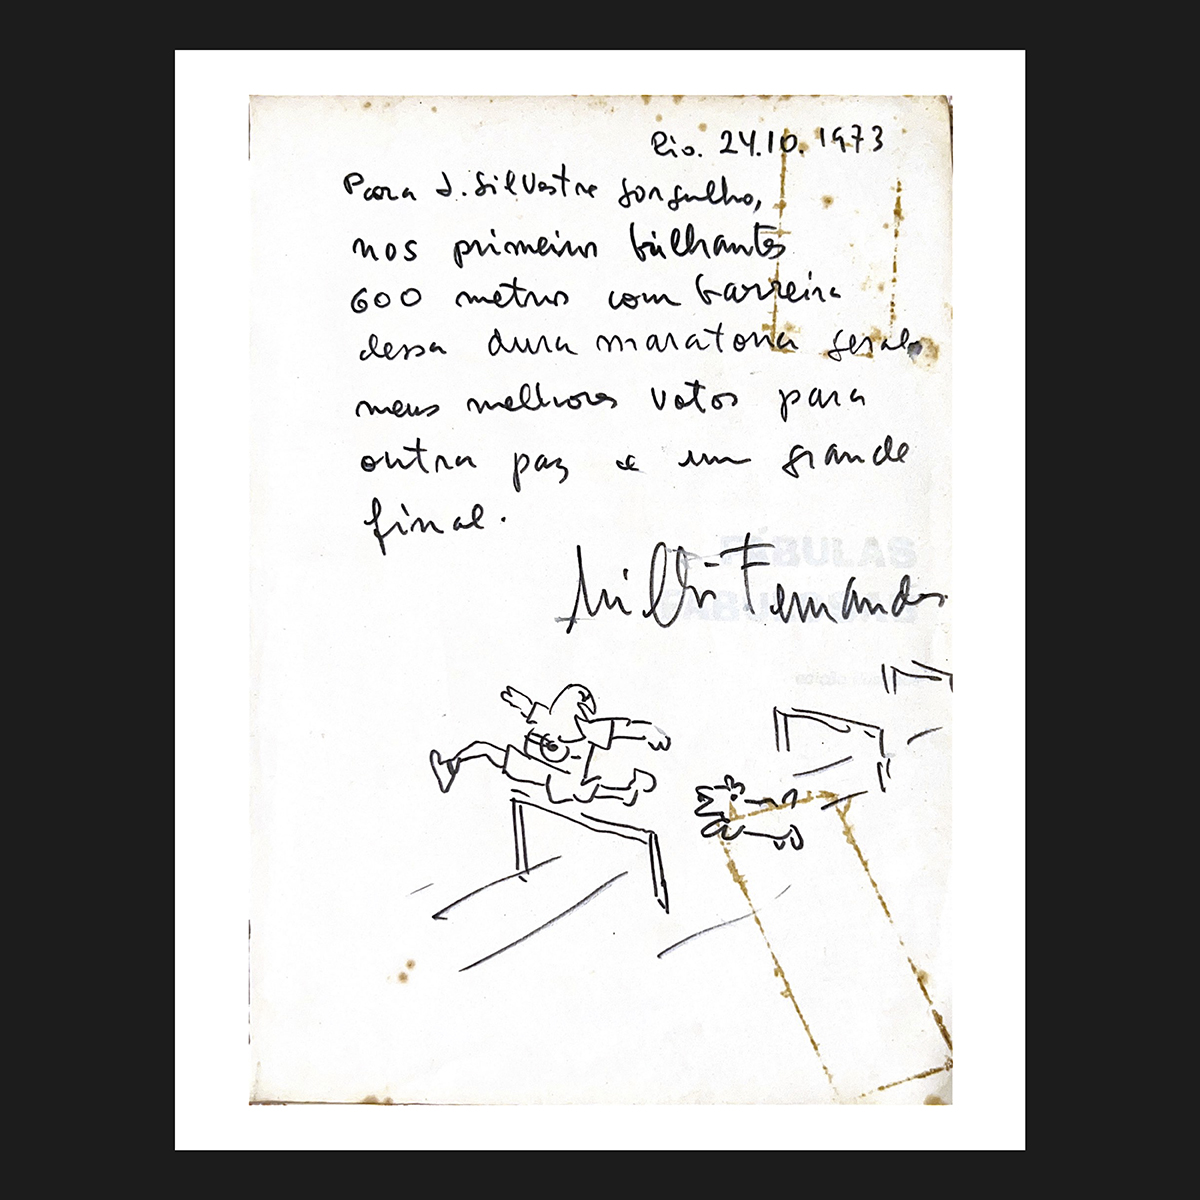 Rio. 24.10.1973
Para J. Silvestre Gorgulho,
nos primeiros brilhantes
600 metros com barreira
dessa dura maratona geral
meus melhores votos para
outra paz e um grande
final.
Millôr Fernandes
FÁBULAS
FABULOSAS